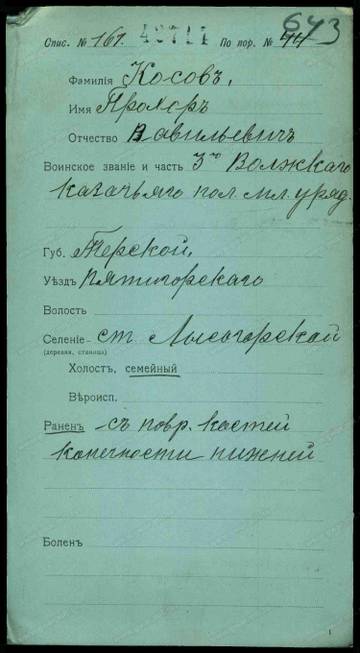 643
Спис. № 161. 42711 По пор. № 44
Фамилія Косовъ,
Имя Прохоръ
Отчество Вавильевичъ
Воинское званіе и часть 3го Волжскаго
казачьяго пол. мл. уряд.
Губ. Терской,
Уѣздъ Пятигорскаго
Волость
Селеніе ст. Лысогорской
(деревня, станица)
Холостъ, семейный
Вѣроисп.
Раненъ с повр. костей
конечности нижней
Боленъ
1